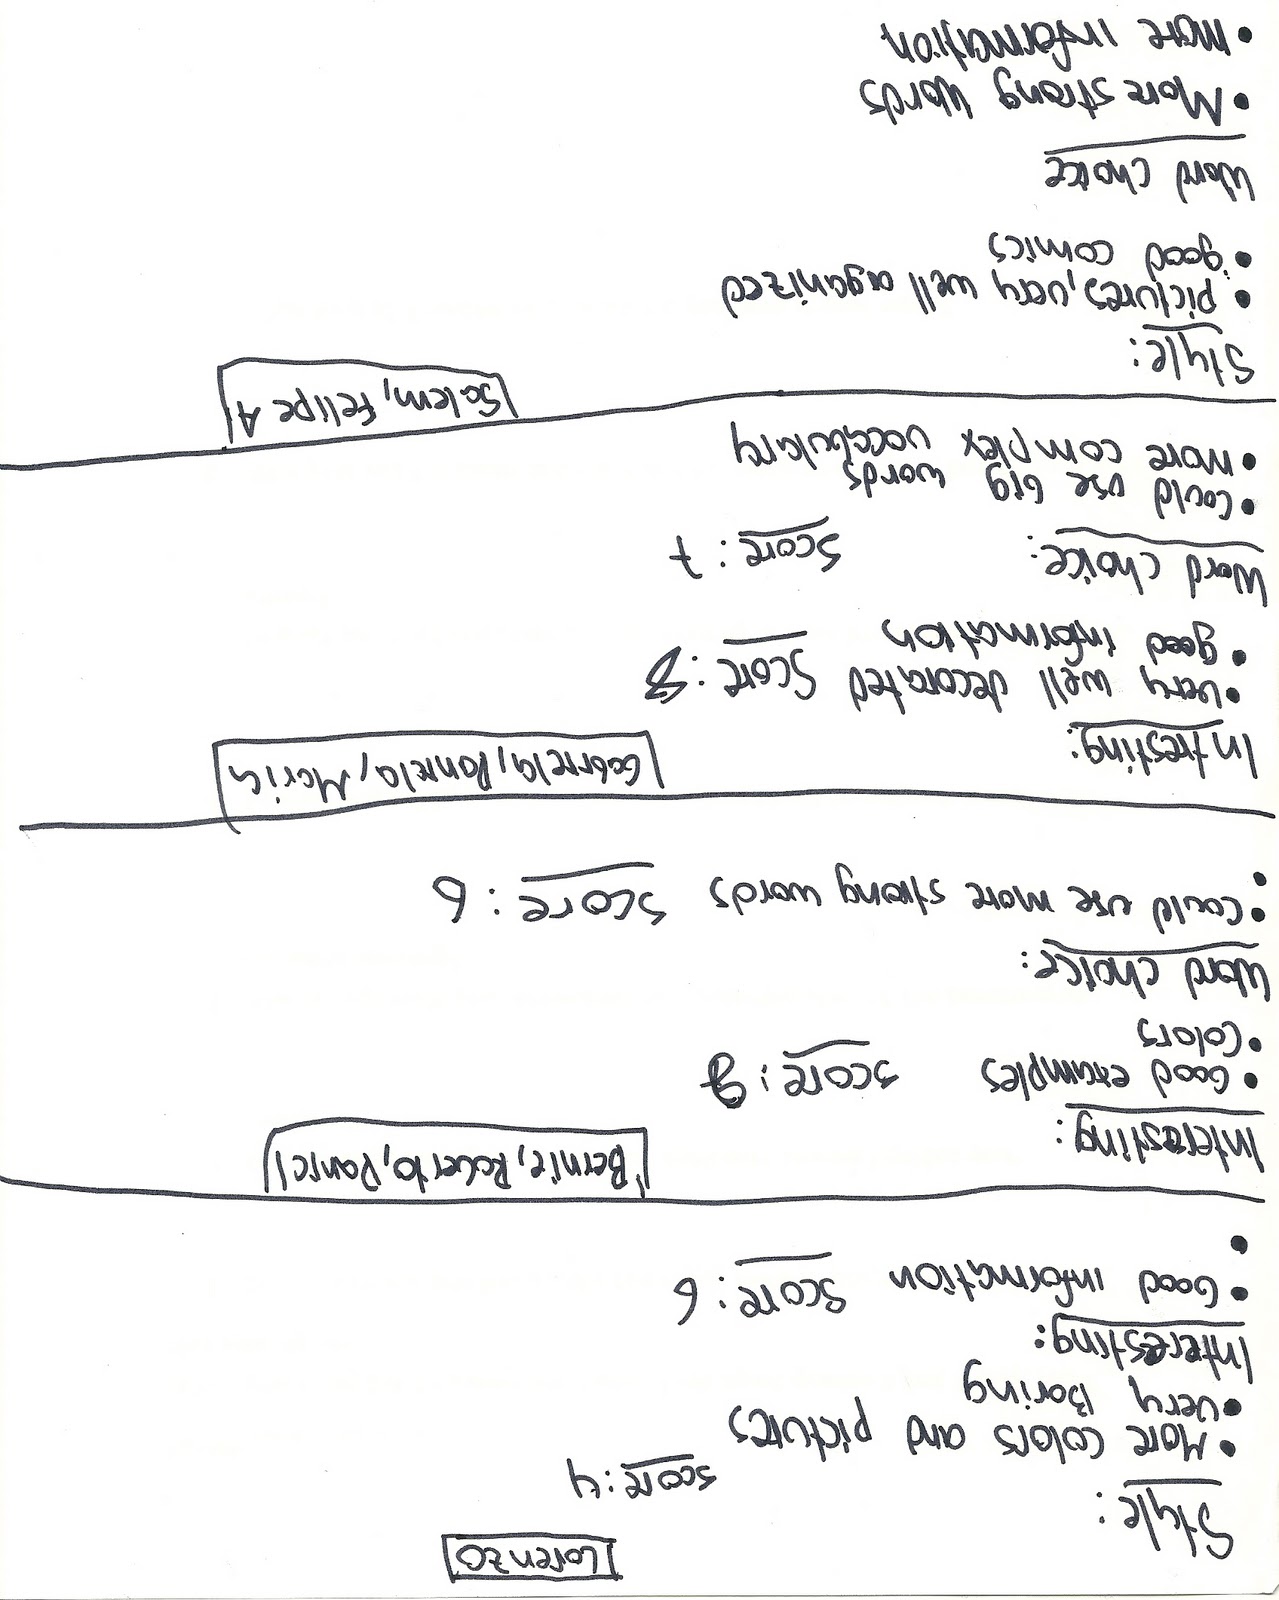 Lorenzo
Style:
score: 4
• More colors and pictures
• Very Boring
Interesting:
• Good information Score: 6
•
Bernie, Roberto, Daniel
Interesting:
• Good examples score: 9
• Colors
Word choice:
• Could use more strong words Score: 6
•
Gabriela, Daniela, Maria
Intresting:
• very well decorated Score: 8
• good information
Word choice: Score: 7
• Could use big words
• more complex vocabulary
Salem, Felipe A
Style:
• pictures, very well organized
• good comics
Word choice
• More strong words
• more information